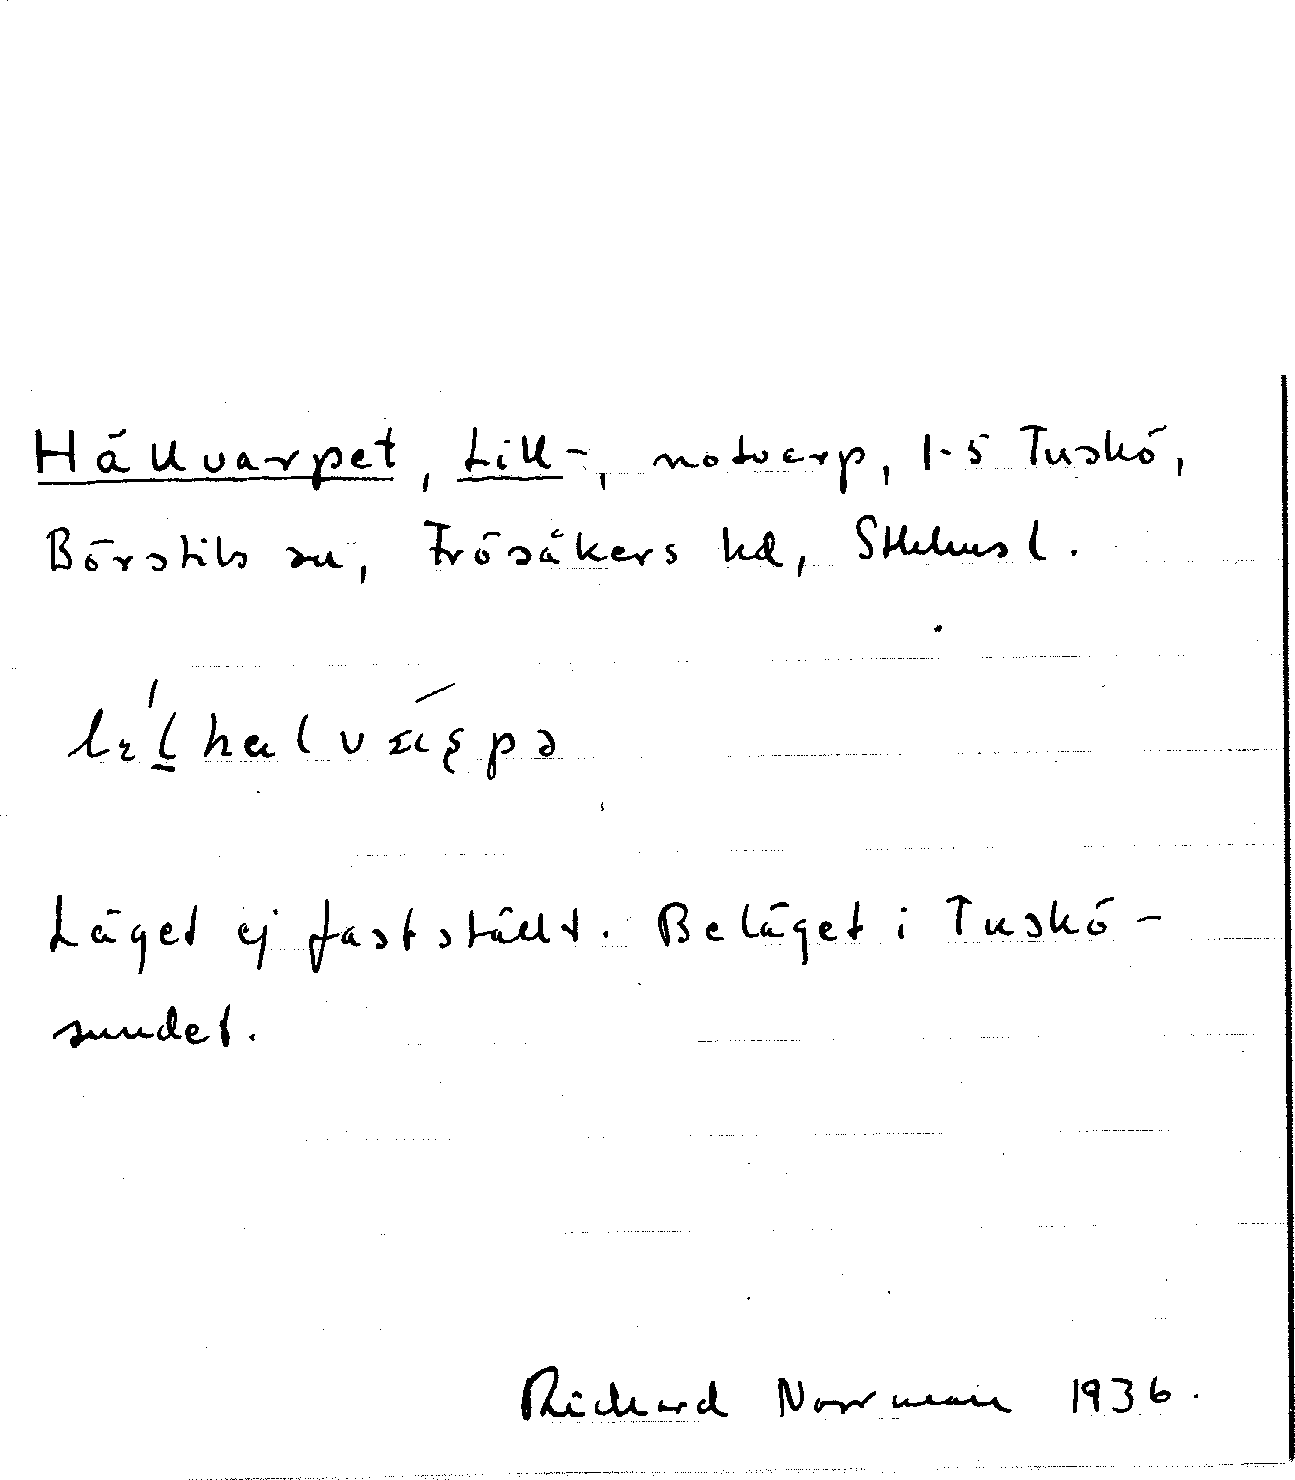 Hällvarpet, Lill-, notvarp, 1-5 Tuskö,
Börstils sn, Frösåkers hd, Sthlms l.
Läget ej fastställt. Beläget i Tuskö-
sundet.
Richard Norrman 1936.